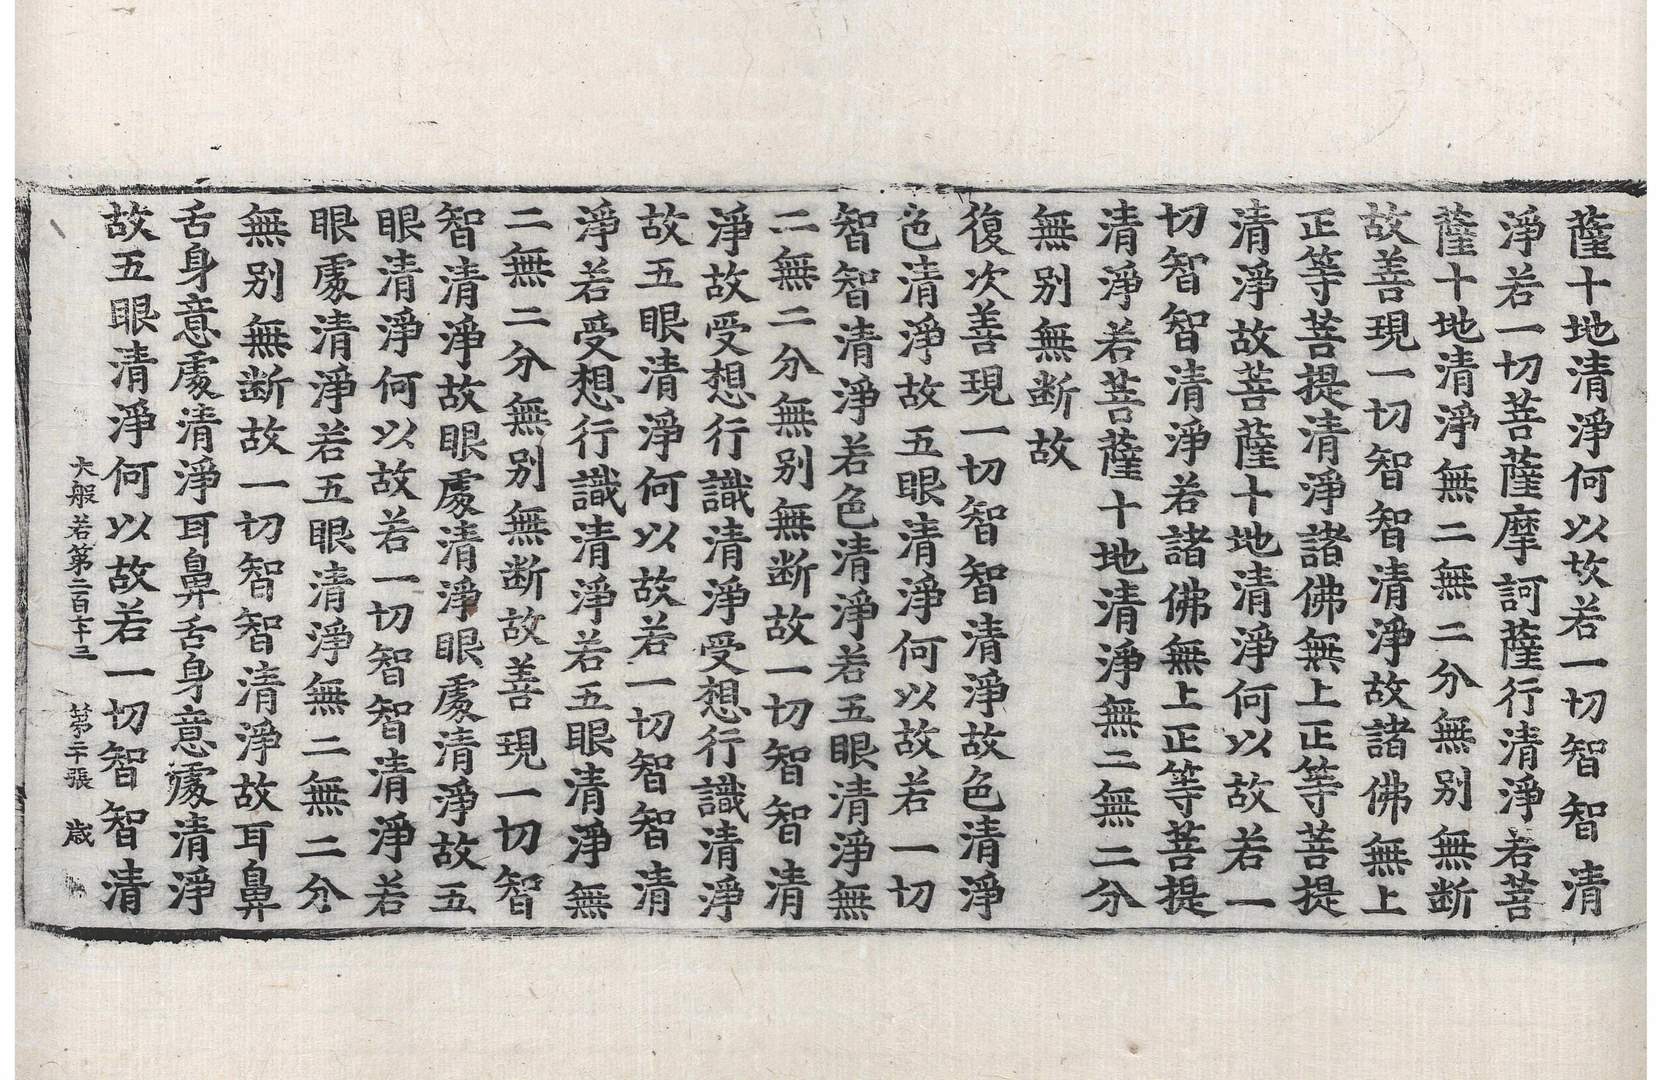 薩十地清淨何以故若一切智智清
淨若一切菩薩摩訶薩行清淨若菩
薩十地清淨無二無二分無别無断
故善現一切智智清淨故諸佛無上
正等菩提清淨諸佛無上正等菩提
清淨故菩薩十地清淨何以故若一
切智智清淨若諸佛無上正等菩提
清淨若菩薩十地清淨無二無二分
無别無断故
復次善現一切智智清淨故色清淨
色清淨故五眼清淨何以故若一切
智智清淨若色清淨若五眼清淨無
二無二分無别無断故一切智智清
淨故受想行識清淨受想行識清淨
故五眼清淨何以故若一切智智清
淨若受想行識清淨若五眼清淨無
二無二分無别無断故善現一切智
智清淨故眼處清淨眼處清淨故五
眼清淨何以故若一切智智清淨若
眼處清淨若五眼清淨無二無二分
無别無断故一切智智清淨故耳鼻
舌身意處清淨耳鼻舌身意處清淨
故五眼清淨何以故若一切智智清
大般若第二百七十三 第二十張 歳